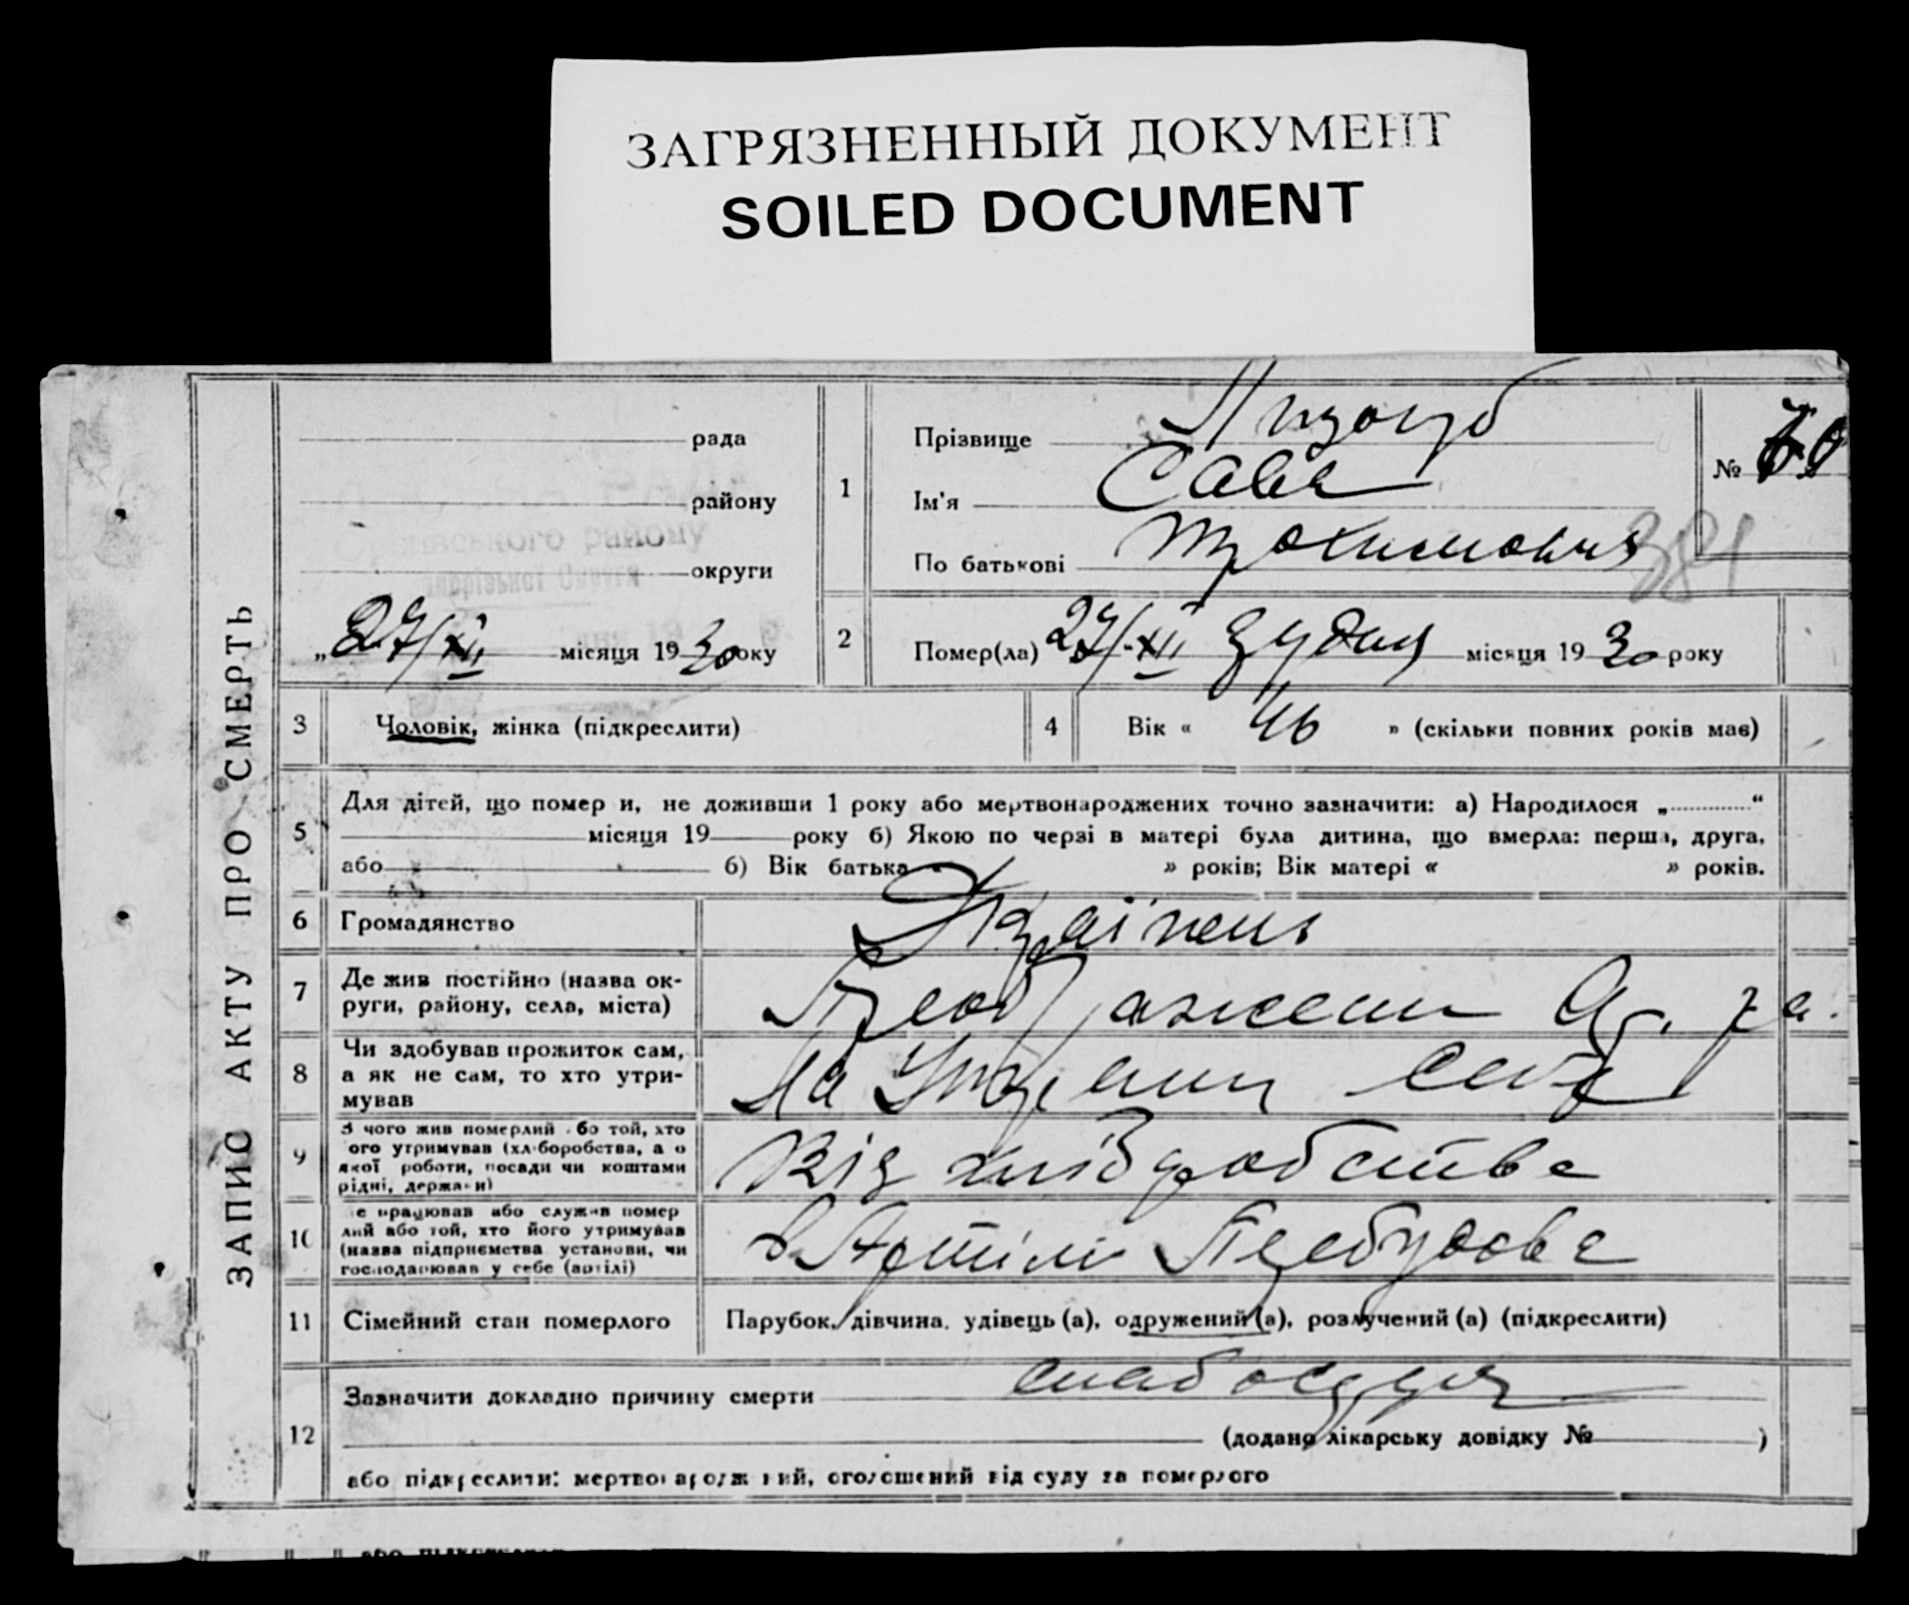 ЗАГРЯЗНЕННЫЙ ДОКУМЕНТ
SOILED DOCUMENT
ЗАПИС АКТУ ПРО СМЕРТЬ
рада
району
району
округи
„27/XII місяця 1930 року
1
Прізвище
Ім'я Сава
По батькові Трохимович
№ 70
381
2 Помер(ла) 27/XII грудня місяця 1930 року
3 Чоловік, жінка (підкреслити)
4 Вік « 46 » (скільки повних років має)
5 Для дітей, що померли, не доживши 1 року або мертвонароджених точно зазначити: а) Народилося „ “
місяця 19 року б) Якою по черзі в матері була дитина, що вмерла: перша, друга,
або б) Вік батька » років; Вік матері « » років.
6 Громадянство Українець
7 Де жив постійно (назва округи, району, села, міста) Преображенка
8 Чи здобував прожиток сам, а як не сам, то хто утримував На утриман себе
9 З чого жив померлий або той, хто його утримував (хліборобства, а о якої роботи, посади чи коштами рідні, держави) Від хліборобства
10 Де працював або служив померлий або той, хто його утримував (назва підприємства установи, чи господарював у себе (артілі) в Артілі Перебудова
11 Сімейний стан померлого Парубок, дівчина, удівець (а), одружений (а), розлучений (а) (підкреслити)
12 Зазначити докладно причину смерти
(додано лікарську довідку № )
або підкреслити: мертвонароджений, оголошений від суду за померлого